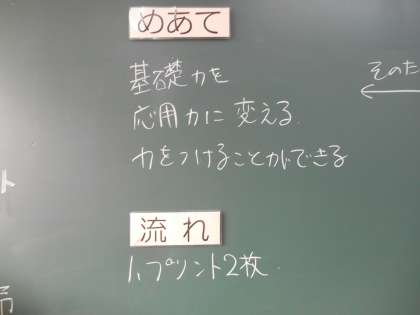 めあて
基礎力を
応用力に変える
力をつけることができる
そのた
流れ
1、プリント2枚
ト